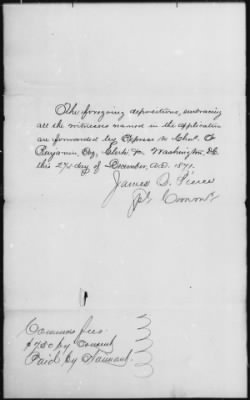 The foregoing depositions, embracing
all the witnesses named in the application
are forwarded by Express to Chas.
Benjamin, Esq, Clerk &c, Washington, DC.
this 27th day of December, A.D. 1871.
James O. Pierce
Comm'r
Comm'rs fees
$7.50 by
Paid by Claimant.